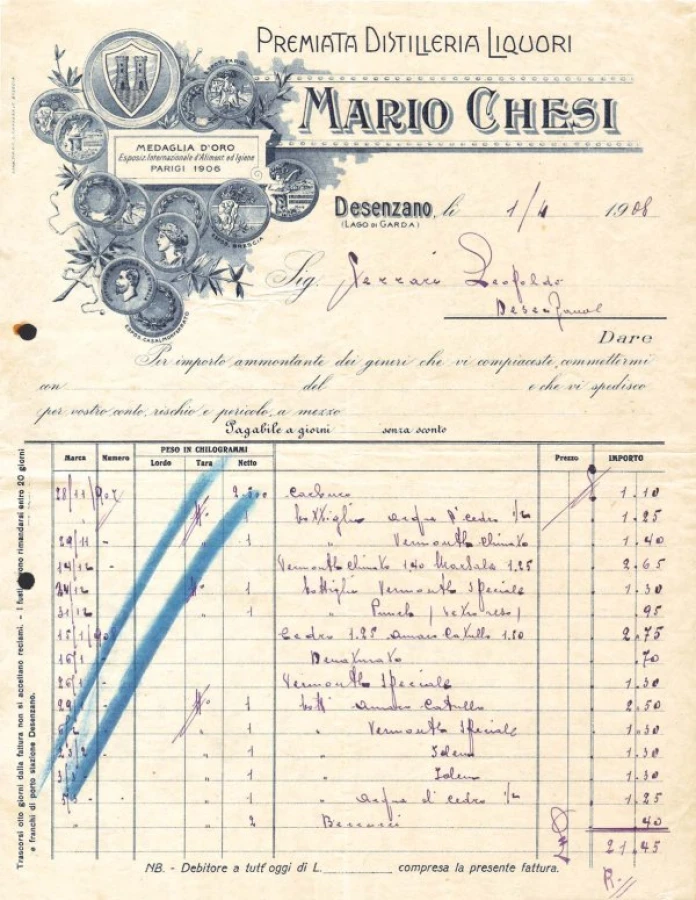 PREMIATA DISTILLERIA LIQUORI
MARIO CHESI
MEDAGLIA D'ORO
Esposiz. Internazionale d'Aliment. ed Igiene
PARIGI 1906
ESPOS. BRESCIA
ESPOS. CASALMONFERRATO
Desenzano, li 1/4 1908
(LAGO DI GARDA)
Sig. Ferrari Leopoldo
Dare
Per importo ammontante dei generi che vi compiaceste commettermi
con del e che vi spedisco
per vostro conto, rischio e pericolo, a mezzo
Pagabile a giorni senza sconto
Marca Numero PESO IN CHILOGRAMMI Prezzo IMPORTO
Lordo Tara Netto
28/11/907 1.10
" 1 bottiglia acqua d'cedro 1/2 1.25
29/11 - " 1 " Vermouth Chinato 1.40
14/12 Vermouth Chinato 1.40 Marsala 1.25 2.65
24/12 1 bottiglia Vermouth Speciale 1.30
31/12 " 1 " Punch 95
15/1/908 Cedro 1.25 Amaro Catullo 1.50 2.75
16/1 Denaturato .70
26/1 Vermouth Speciale 1.30
29/1 1 bott Amaro Catullo 2.50
6/2 - " 1 " Vermouth Speciale 1.30
23/2 " 1 " Idem 1.30
3/3 " 1 " Idem 1.30
5/3 - " 1 " acqua d'cedro 1/2 1.25
" " 2 40
21.45
NB. - Debitore a tutt'oggi di L. compresa la presente fattura.
Trascorsi otto giorni dalla fattura non si accettano reclami. - I fusti devono rimandarsi entro 20 giorni
e franchi di porto stazione Desenzano.